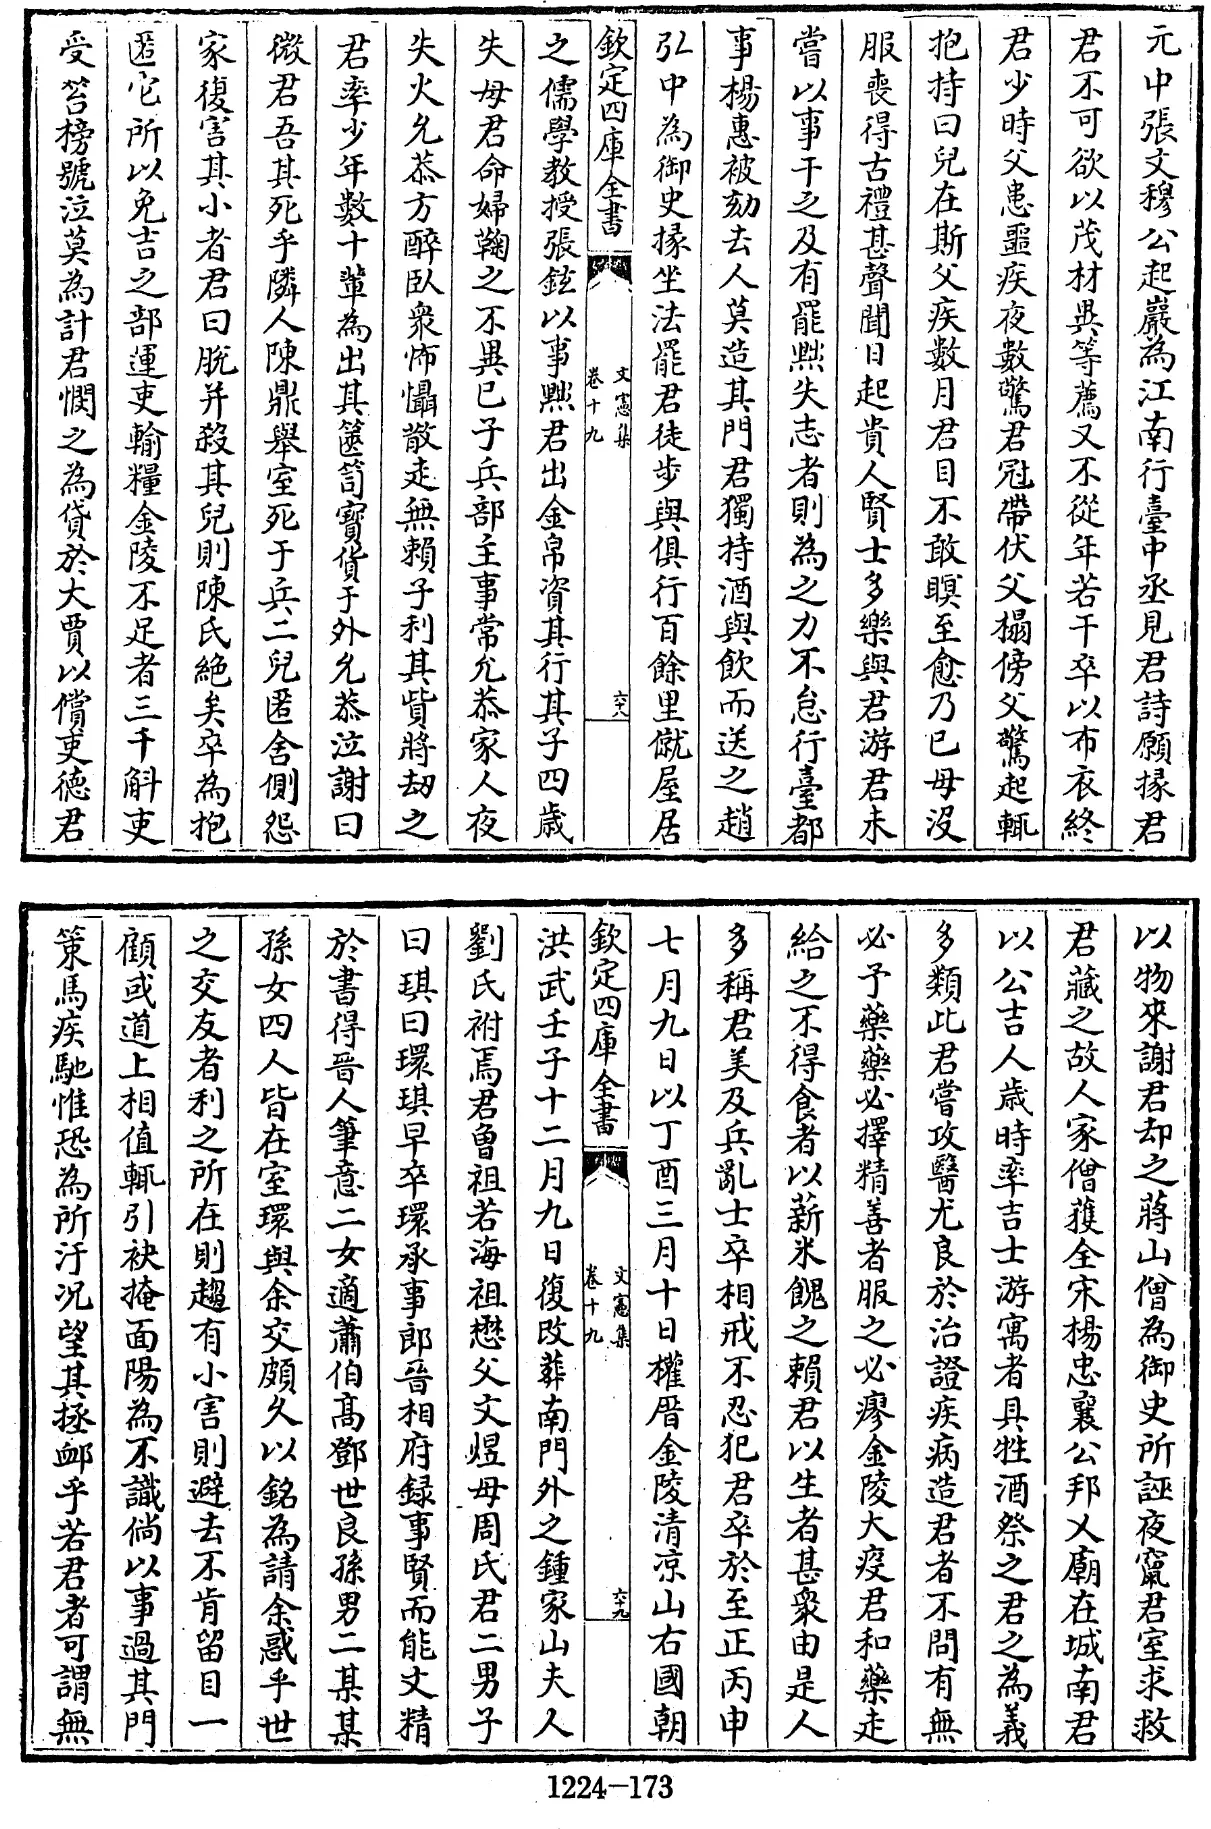 元中張文穆公起巖為江南行臺中丞見君詩願掾君
君不可欲以茂材異等薦又不從年若干卒以布衣終
君少時父患惡疾夜數驚君冠帶伏父榻傍父驚起輒
抱持曰兒在斯父疾數月君目不敢瞑至愈乃已母沒
服喪得古禮甚聲聞日起貴人賢士多樂與君游君未
嘗以事干之及有罷黜失志者則為之力不怠行臺都
事楊惠被劾去人莫造其門君獨持酒與飲而送之趙
弘中為御史掾坐法罷君徒步與俱行百餘里僦屋居
欽定四庫全書
文憲集
卷十九
六十八
之儒學教授張鉉以事黜君出金帛資其行其子四歲
失母君命婦鞠之不異已子兵部主事常允恭家人夜
失火允恭方醉臥衆怖懾散走無賴子利其貲將刼之
君率少年數十輩為出其篋笥寶貨于外允恭泣謝曰
微君吾其死乎隣人陳鼎舉室死于兵二兒匿舍側怨
家復害其小者君曰脫并殺其兒則陳氏絕矣卒為抱
匿它所以免吉之部運吏輸糧金陵不足者三千斛吏
受笞榜號泣莫為計君憫之為貸於大賈以償吏德君
以物來謝君却之蔣山僧為御史所誣夜竄君室求救
君藏之故人家僧獲全宋楊忠襄公邦乂廟在城南君
以公吉人歲時率吉士游寓者具牲酒祭之君之為義
多類此君嘗攻醫尤良於治證疾病造君者不問有無
必予藥藥必擇精善者服之必瘳金陵大疫君和藥走
給之不得食者以薪米餽之賴君以生者甚衆由是人
多稱君美及兵亂士卒相戒不忍犯君卒於至正丙申
七月九日以丁酉三月十日權厝金陵清涼山右國朝
欽定四庫全書
文憲集
卷十九
六十九
洪武壬子十二月九日復改葬南門外之鍾家山夫人
劉氏祔焉君曾祖若海祖懋父文煜母周氏君二男子
曰琪曰環琪早卒環承事郎晉相府録事賢而能文精
於書得晉人筆意二女適蕭伯髙鄧世良孫男二某某
孫女四人皆在室環與余交頗久以銘為請余惑乎世
之交友者利之所在則趨有小害則避去不肯留目一
顧或道上相值輒引袂掩面陽為不識倘以事過其門
策馬疾馳惟恐為所汙况望其拯卹乎若君者可謂無
1224-173